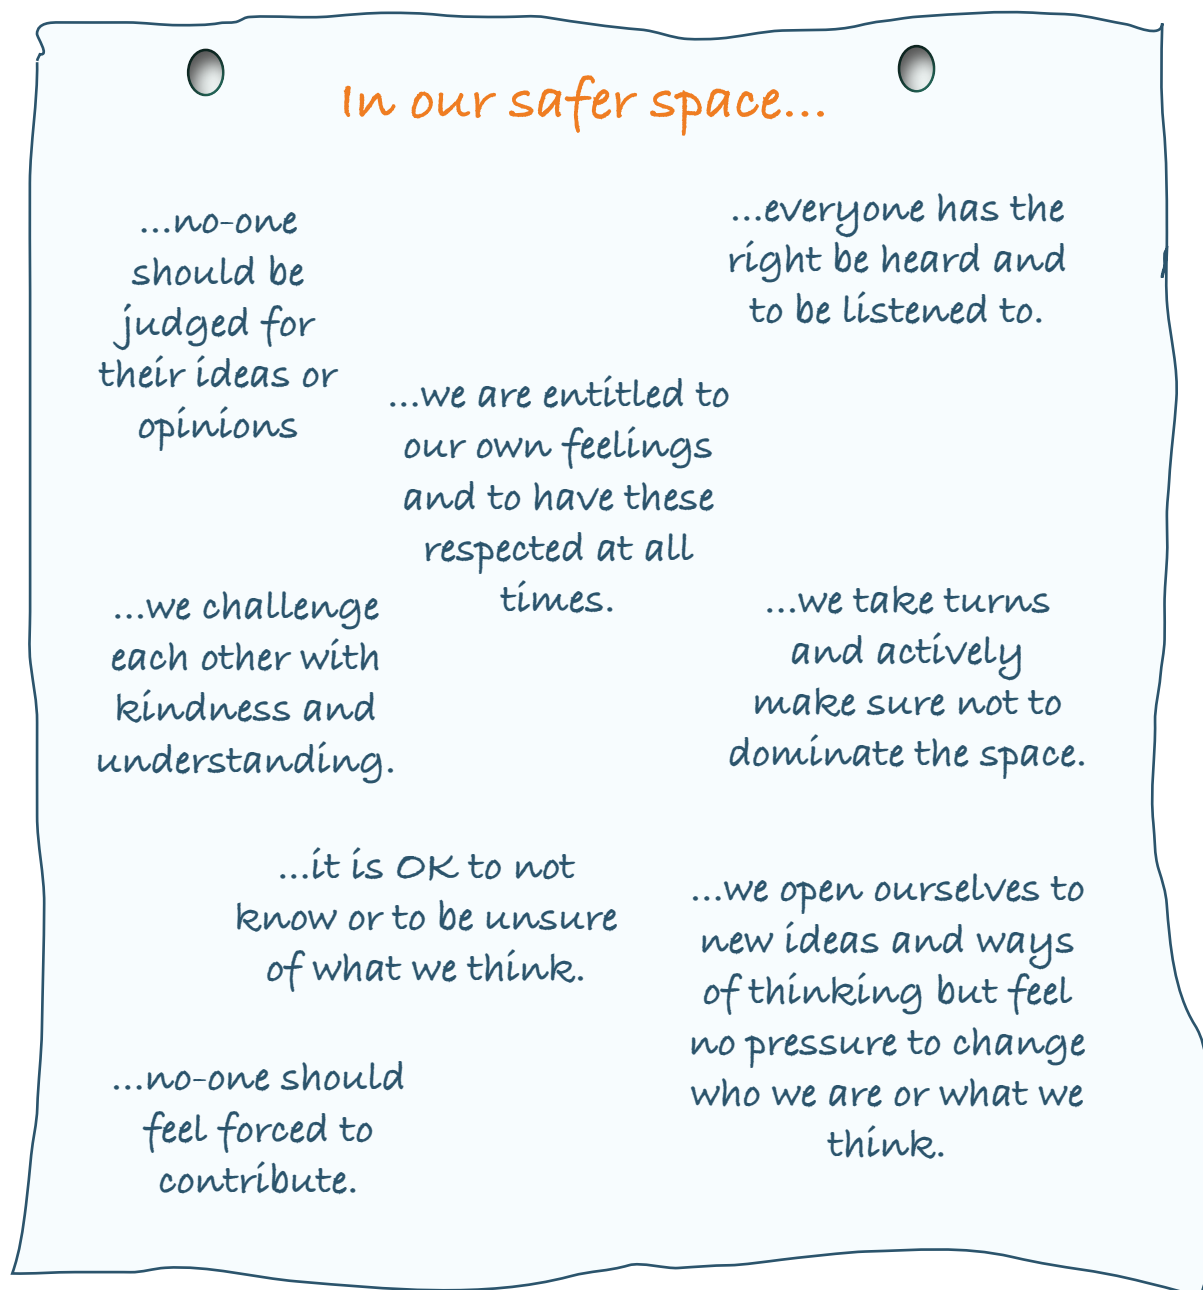 In our safer space...
...no-one
should be
judged for
their ideas or
opinions
...everyone has the
right be heard and
to be listened to.
...we are entitled to
our own feelings
and to have these
respected at all
times.
...we challenge
each other with
kindness and
understanding.
...we take turns
and actively
make sure not to
dominate the space.
...it is OK to not
know or to be unsure
of what we think.
...we open ourselves to
new ideas and ways
of thinking but feel
no pressure to change
who we are or what we
think.
...no-one should
feel forced to
contribute.